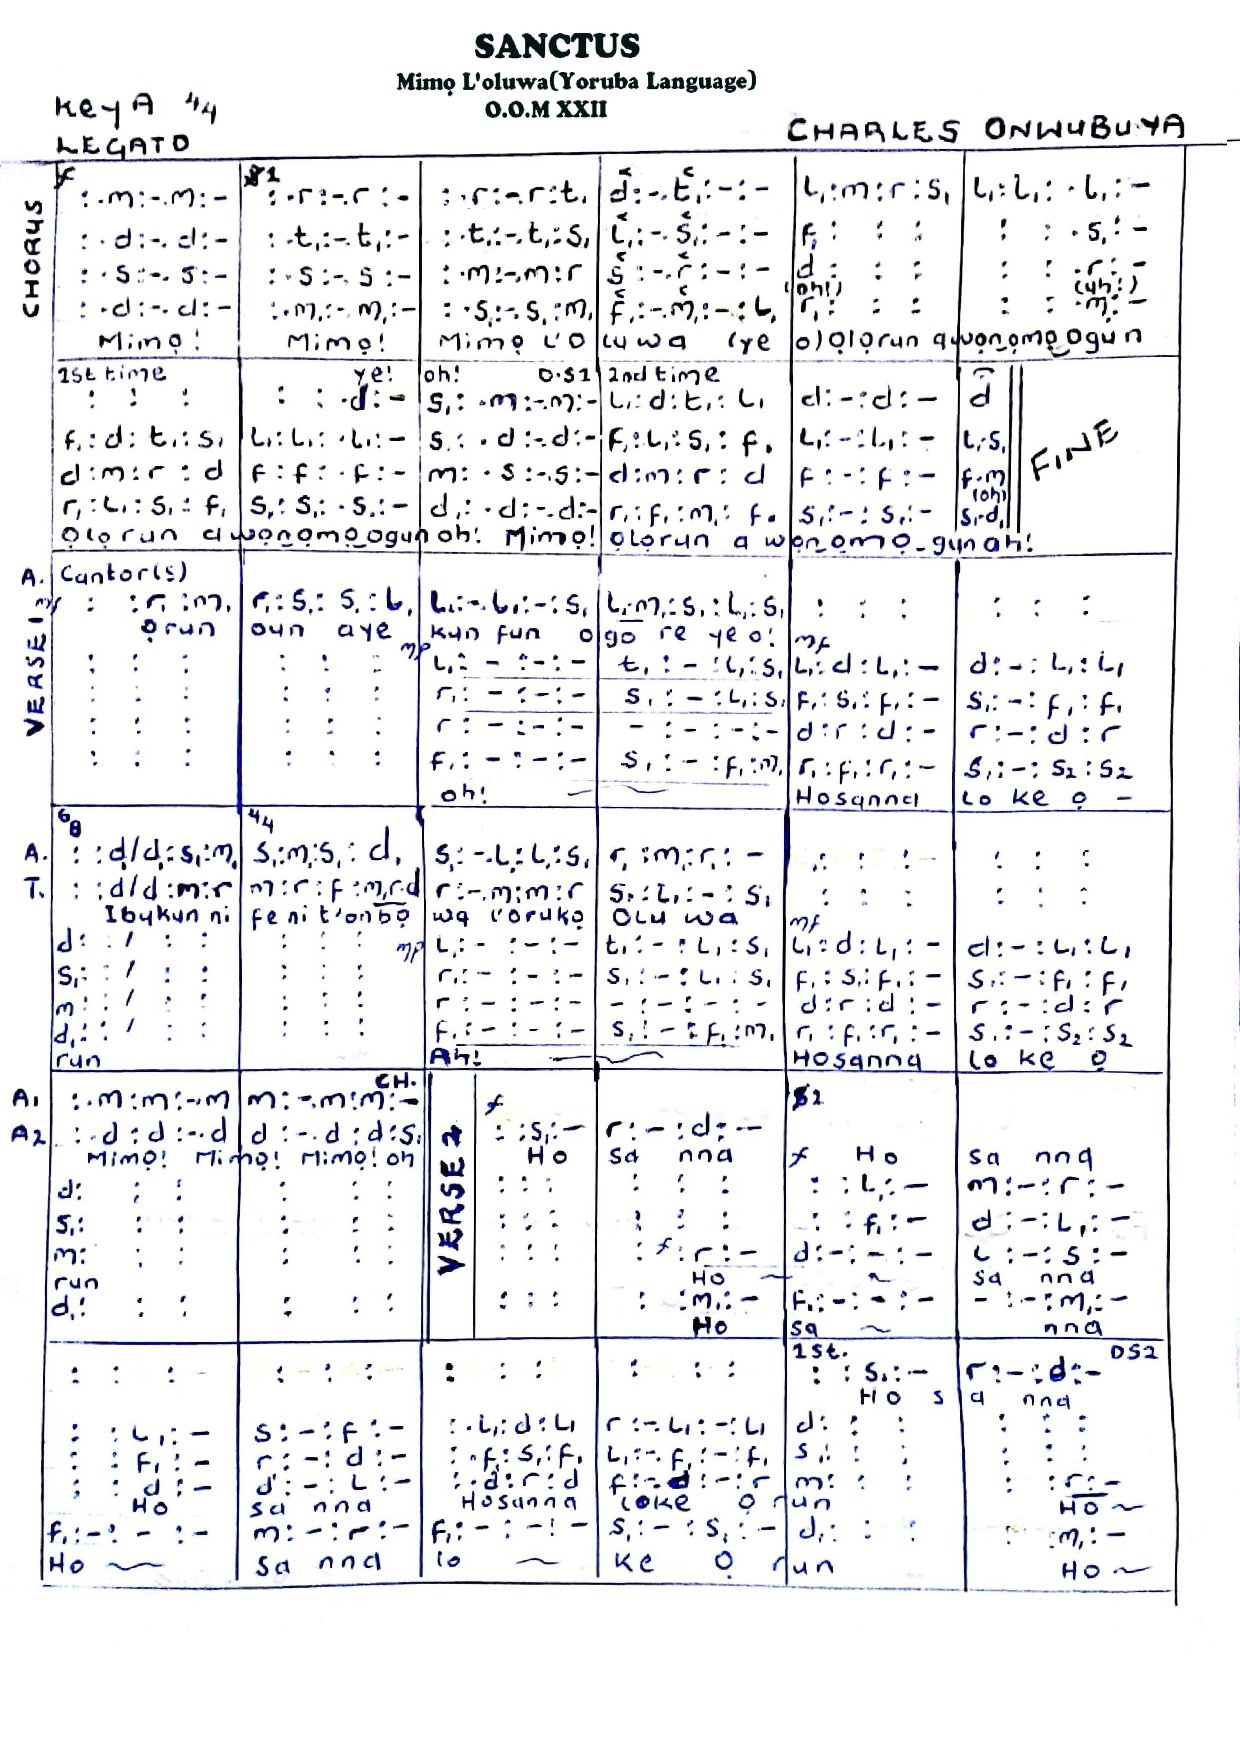 SANCTUS
Mimọ L'oluwa(Yoruba Language)
O.O.M XXII
Key A 4/4
LEGATO
CHARLES ONWUBUYA
CHORUS
f :.m:-.m:- | :.r:-.r:- | :.r:-.r:t, | d:-.t,:-:- | l,:m:r:s, | l,:l,:.l,:-
:.d:-.d:- | :.t,:-.t,:- | :.t,:-.t,:s, | l,:-.s,:-:- | f,: : : | : :.s,:-
:.s:-.s:- | :.s:-.s:- | :.m:-.m:r | s:-.r:-:- | d: : : | : :.r:-
(oh!) (uh!)
:.d:-.d:- | :.m,:-.m,:- | :.s,:-.s,:m, | f,:-.m,:-:l, | r,: : : | : :.m,:-
Mimọ! Mimọ! Mimọ L'O luwa (ye o)Ọlọrun awọn ọmọ Ogun
1st time ye! oh! D.S1 2nd time
: : : | : :.d:- | s,:.m:-.m:- | l,:d:t,:l, | d:-:d:- | d
f,:d:t,:s, | l,:l,:.l,:- | s,:.d:-.d:- | f,:l,:s,:f, | l,:-:l,:- | l,.s,
FINE
d:m:r:d | f:f:.f:- | m:.s:-.s:- | d:m:r:d | f:-:f:- | f.m
(oh)
r,:l,:s,:f, | s,:s,:.s,:- | d,:.d:-.d:- | r,:f,:m,:f, | s,:-:s,:- | s,.d,
Ọlọrun awọn ọmọ ogun oh! Mimọ! Ọlọrun awọn ọmọ-gun ah!
A. Cantor(s)
VERSE 1
mf : :r,:m, | r,:s,:s,:l, | l,:-.l,:-:s, | l,.m,:s,:l,:s, | : : : | : : :
Ọrun oun aye kun fun ogo re ye o! mf
: : : | : : : mp | l,:-:-:- | t,:-:l,:s, | l,:d:l,:- | d:-:l,:l,
: : : | : : : | r,:-:-:- | s,:-:l,:s, | f,:s,:f,:- | s,:-:f,:f,
: : : | : : : | r:-:-:- | -:-:-:- | d:r:d:- | r:-:d:r
: : : | : : : | f,:-:-:- | s,:-:f,:m, | r,:f,:r,:- | s,:-:s2:s2
oh! Hosanna lo ke ọ -
6/8 4/4
A. : :d/d:s,:m, | s,:m,:s,:d, | s,:-.l,:l,:s, | r,:m,:r,:- | : : : | : : :
T. : :d/d:m:r | m:r:f:m,r.d | r:-.m:m:r | s,:l,:-:s, | : : :
Ibukun ni fe ni t'onbọ wa l'orukọ Olu wa mf
d: : / : : | : : : mp | l,:-:-:- | t,:-:l,:s, | l,:d:l,:- | d:-:l,:l,
s,: : / : : | : : : | r,:-:-:- | s,:-:l,:s, | f,:s,:f,:- | s,:-:f,:f,
m: : / : : | : : : | r:-:-:- | -:-:-:- | d:r:d:- | r:-:d:r
d,: : / : : | : : : | f,:-:-:- | s,:-:f,:m, | r,:f,:r,:- | s,:-:s2:s2
run Ah! Hosanna lo ke ọ
CH.
A1 :.m:m:-.m | m:-.m:m:- | f | S2
A2 :.d:d:-.d | d:-.d:d:s, | : :s,:- | r:-:d:-
VERSE 2
Mimọ! Mimọ! Mimọ! oh Ho sa nna f Ho sa nna
d: : : | : : : | : : : | : : : | : :l,:- | m:-:r:-
s,: : : | : : : | : : : | : : : | : :f,:- | d:-:l,:-
m: : : | : : : | : : : | : f :r:- | d:-:-:- | l:-:s:-
run Ho sa nna
d,: : : | : : : | : : : | : :m,:- | f,:-:-:- | -:-:m,:-
Ho sa nna
1st. DS2
: : : | : : : | : : : | : : : | : :s,:- | r:-:d:-
Ho s a nna
: :l,:- | s:-:f:- | :.l,:d:l, | r:-.l,:-:l, | d: : : | : : :
: :f,:- | r:-:d:- | :.f,:s,:f, | l,:-.f,:-:f, | s,: : : | : : :
: :d:- | d':-:l:- | :.d:r:d | f:-.d:-:r | m: : : | : :r:-
Ho sa nna Hosanna loke ọ run Ho
f,:-:-:- | m:-:r:- | f,:-:-:- | s,:-:s,:- | d,: : : | : :m,:-
Ho sa nna lo ke ọ run Ho